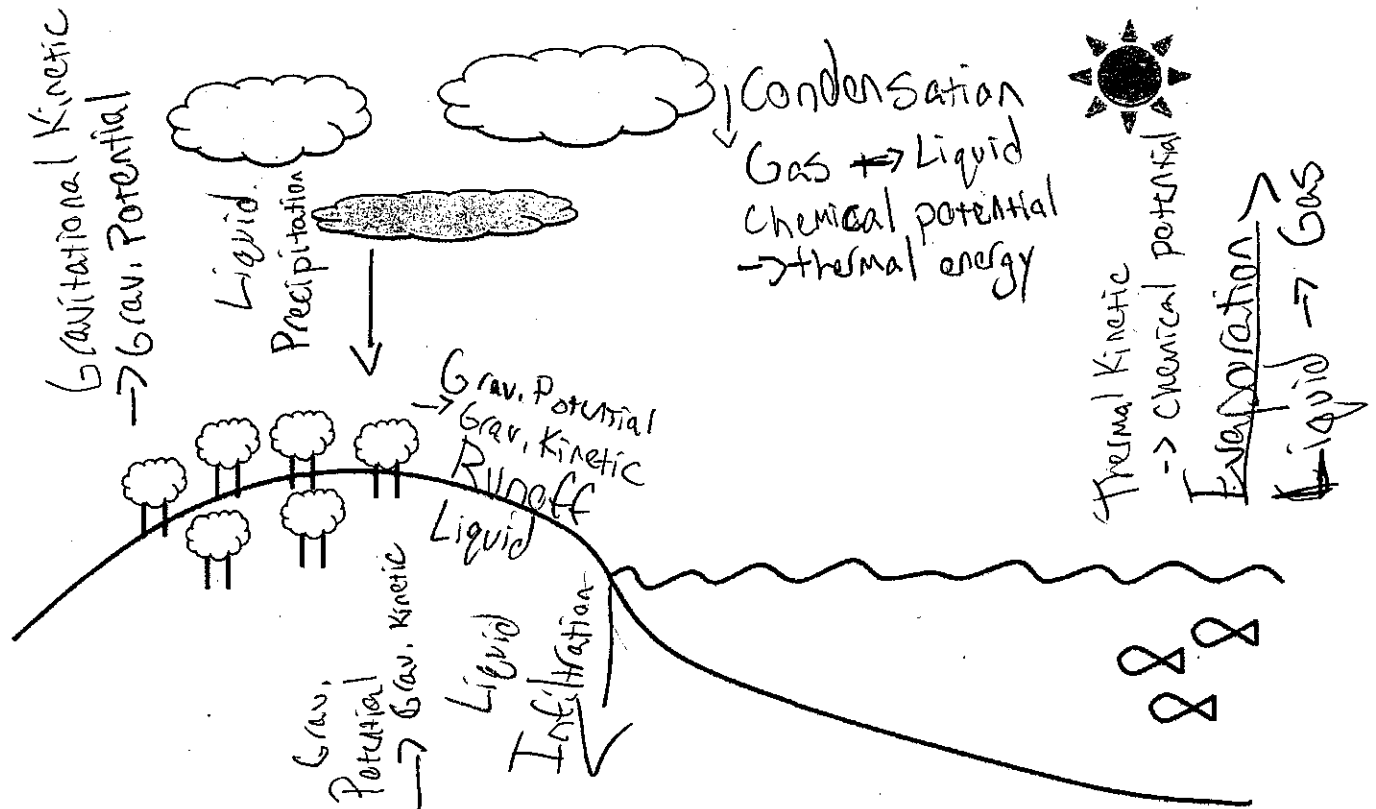 Gravitational Kinetic
→ Grav. Potential
Liquid
Precipitation
Condensation
Gas → Liquid
Chemical potential
→ thermal energy
Thermal Kinetic
→ Chemical potential
Evaporation
Liquid → Gas
Grav. Potential
→ Grav. Kinetic
Runoff
Liquid
Grav.
Potential
→ Grav. Kinetic
Liquid
Infiltration